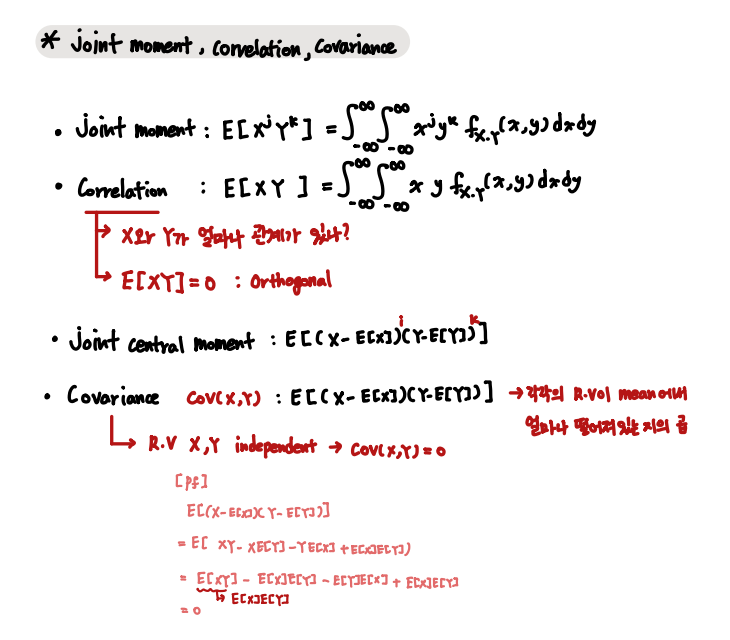 * Joint moment, Correlation, Covariance
• Joint moment : E[X^j Y^k] = ∫_{-∞}^{∞} ∫_{-∞}^{∞} x^j y^k f_{X.Y}(x,y) dx dy
• Correlation : E[X Y] = ∫_{-∞}^{∞} ∫_{-∞}^{∞} x y f_{X.Y}(x,y) dx dy
→ X와 Y가 얼마나 관계가 있나?
→ E[XY] = 0 : Orthogonal
• Joint central moment : E[(X-E[X])^i (Y-E[Y])^k]
• Covariance COV(X,Y) : E[(X-E[X])(Y-E[Y])] → 각각의 R.V의 mean에서
얼마나 떨어져 있는 지의 곱
→ R.V X,Y independent → COV(X,Y) = 0
[pf]
E[(X-E[X])(Y-E[Y])]
= E[ XY - XE[Y] - YE[X] + E[X]E[Y])
= E[XY] - E[X]E[Y] - E[Y]E[X] + E[X]E[Y]
↳ E[X]E[Y]
= 0